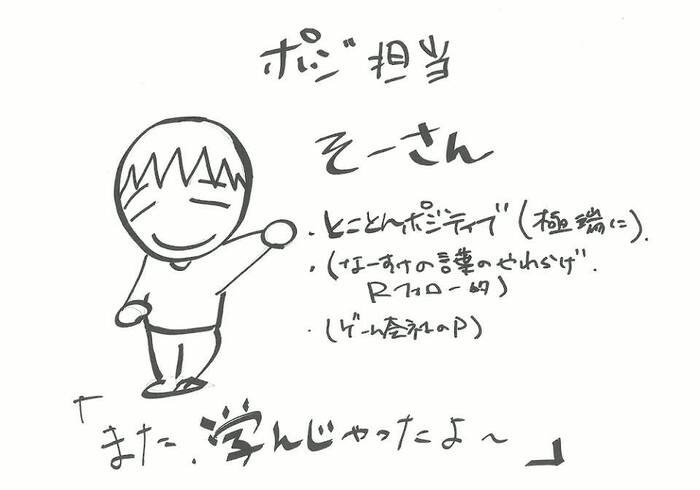 ポジ担当
そーさん
・とことんポジティブ(極端に).
・(なーすけの言葉のやわらげ.
Rフォロー的)
・(ゲーム会社のP)
「また、学んじゃったよ〜」